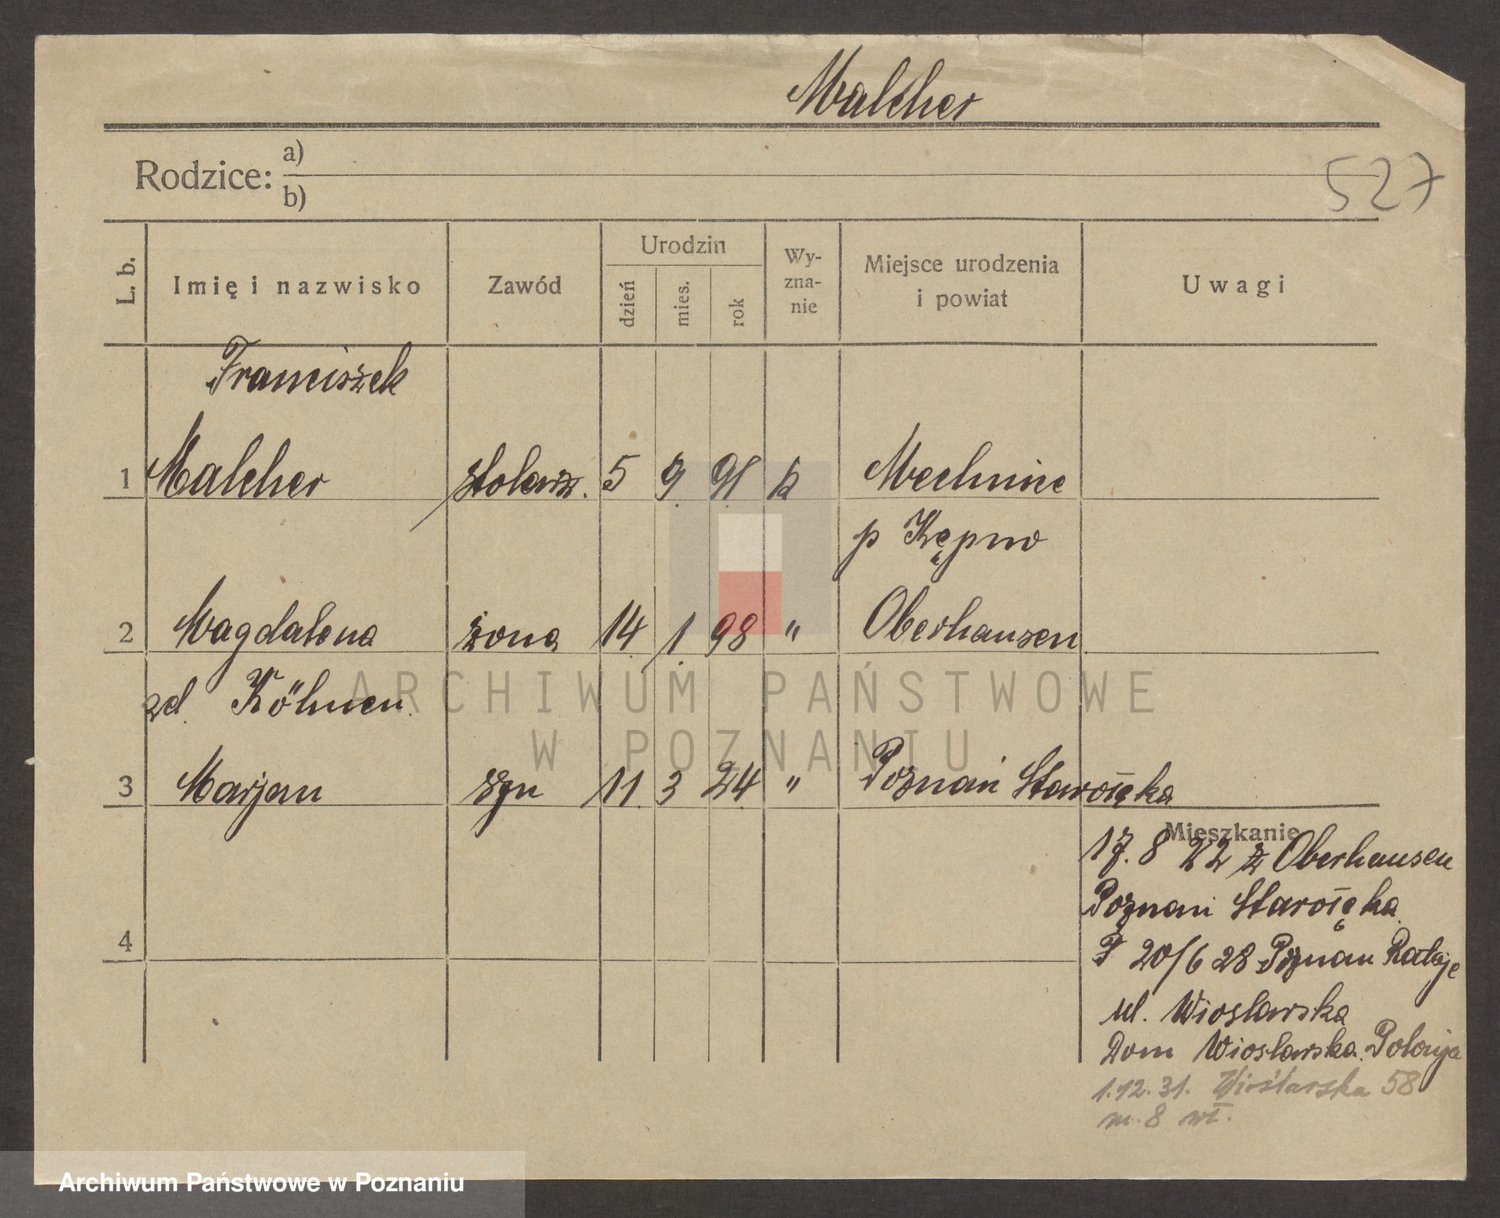 Malcher
Rodzice: a)
b)
527
L. b. Imię i nazwisko Zawód Urodzin dzień mies. rok Wy-zna-nie Miejsce urodzenia i powiat Uwagi
Franciszek
1 Malcher stolarz. 5 9 91 k Mechnice
p Kępno
2 Magdalena żona 14 1 98 " Oberhausen
zd. Köhnen
3 Marjan syn 11 3 24 " Poznań Starołęka
Mieszkanie
17. 8 22 z Oberhausen
Poznań Starołęka
4
20/6 28 Poznań Rataje
ul. Wioslarska
Dom Wioslarska Polonja
1.12.31. Wioślarska 58
m. 8 wł.
ARCHIWUM PAŃSTWOWE
W POZNANIU
Archiwum Państwowe w Poznaniu